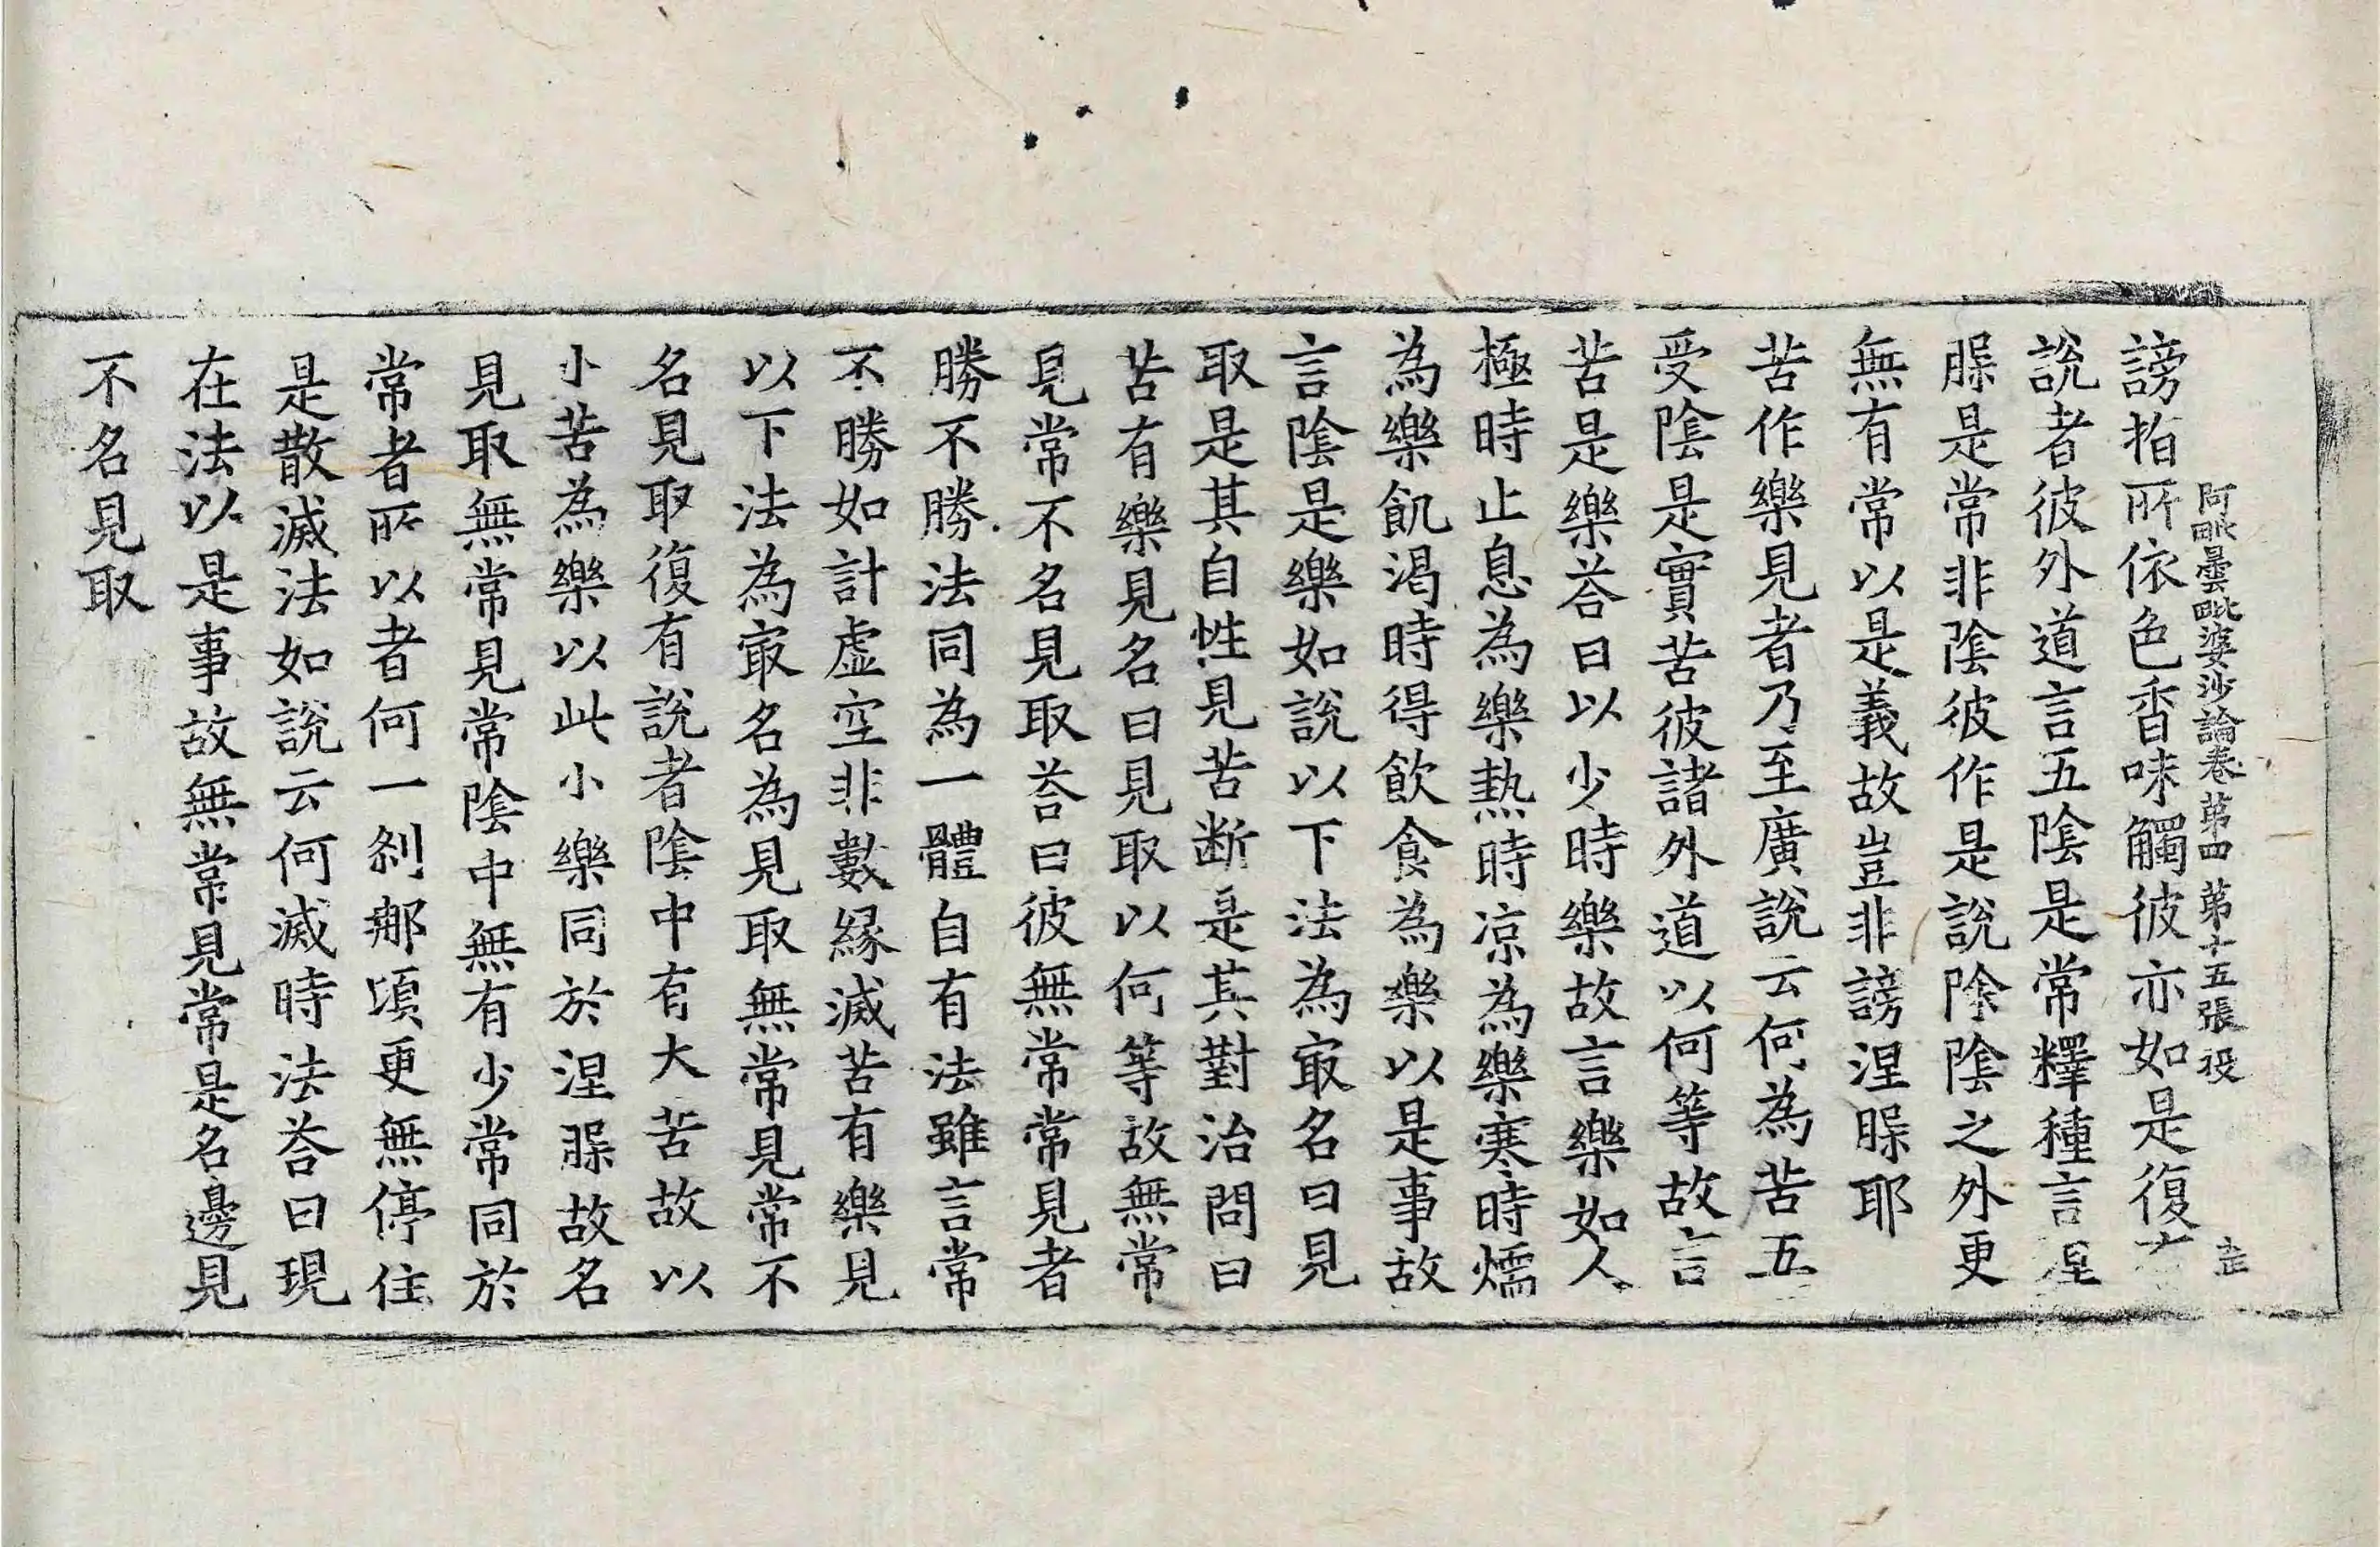 阿毗曇毗婆沙論卷第四 第十五張 役
謗指所依色香味觸彼亦如是復
說者彼外道言五陰是常釋種言涅
𦝫是常非陰彼作是說除陰之外更
無有常以是義故豈非謗涅𦝫耶
苦作樂見者乃至廣說云何為苦五
受陰是實苦彼諸外道以何等故言
苦是樂荅曰以少時樂故言樂如人
極時止息為樂熱時凉為樂寒時燸
為樂飢渴時得飲食為樂以是事故
言陰是樂如說以下法為㝡名曰見
取是其自性見苦断是其對治問曰
苦有樂見名曰見取以何等故無常
見常不名見取荅曰彼無常常見者
勝不勝法同為一體自有法雖言常
不勝如計虛空非數緣滅苦有樂見
以下法為㝡名為見取無常見常不
名見取復有說者陰中有大苦故以
小苦為樂以此小樂同於涅𦝫故名
見取無常見常陰中無有少常同於
常者所以者何一剎那頃更無停住
是散滅法如說云何滅時法荅曰現
在法以是事故無常見常是名邊見
不名見取